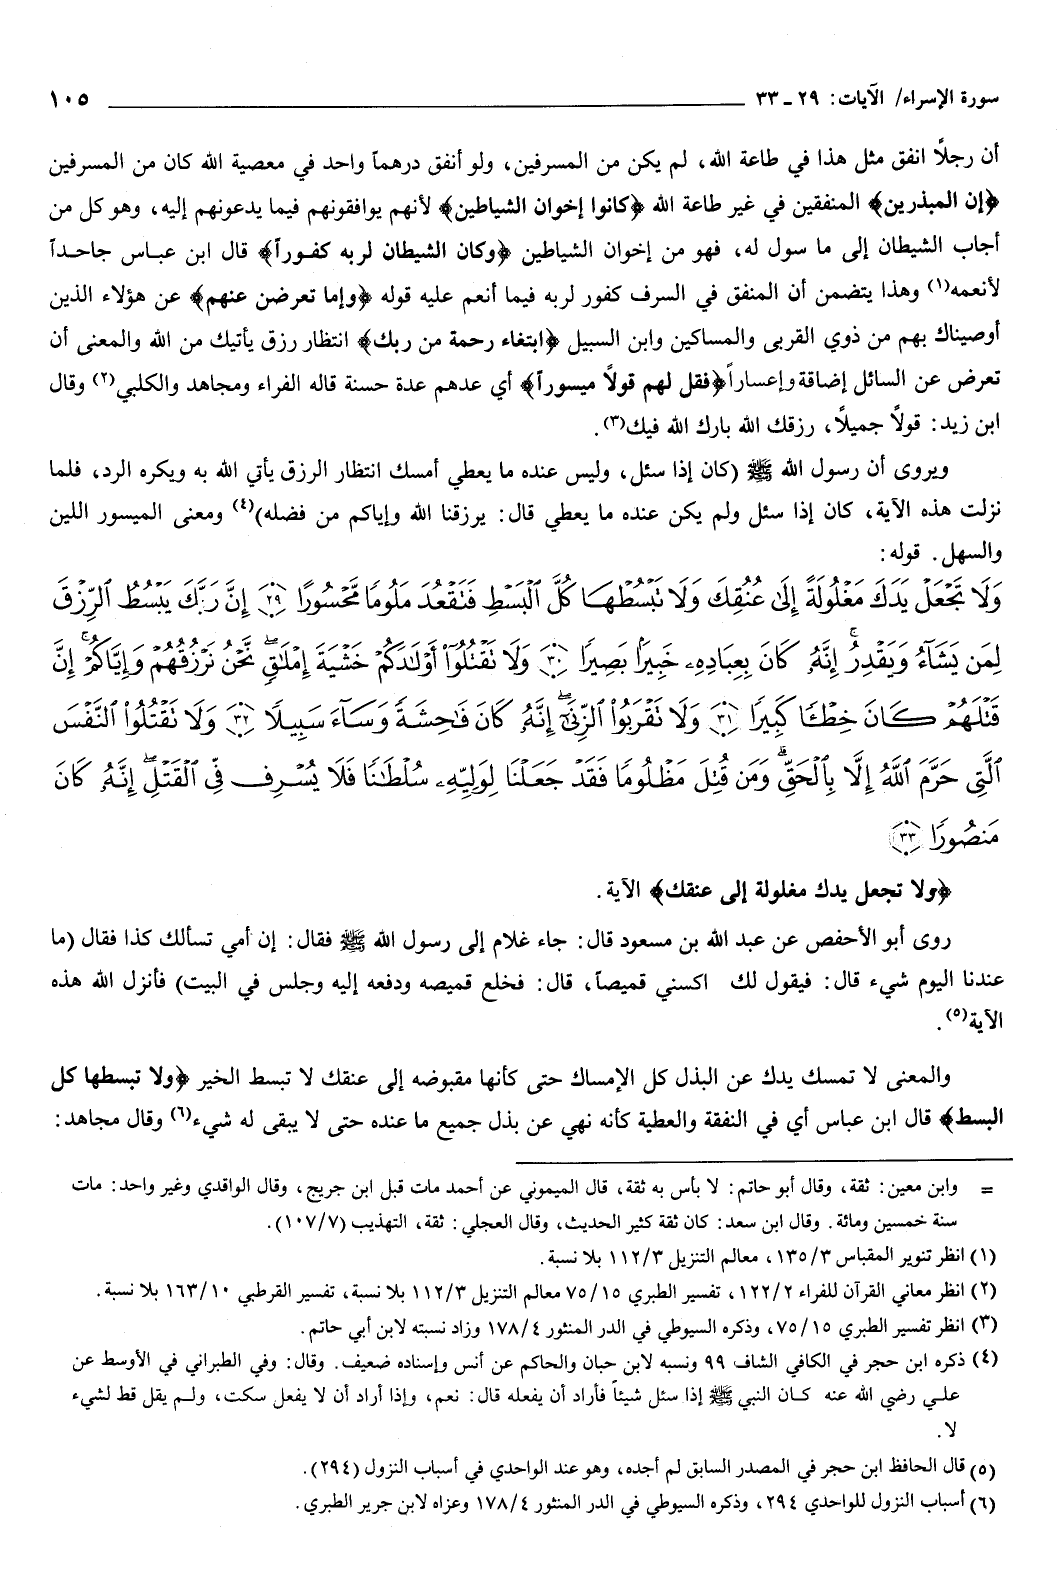 سورة الإسراء/ الآيات: ٢٩ ـ ٣٣ ١٠٥
أن رجلاً انفق مثل هذا في طاعة الله، لم يكن من المسرفين، ولو أنفق درهماً واحد في معصية الله كان من المسرفين
﴿إن المبذرين﴾ المنفقين في غير طاعة الله ﴿كانوا إخوان الشياطين﴾ لأنهم يوافقونهم فيما يدعونهم إليه، وهو كل من
أجاب الشيطان إلى ما سول له، فهو من إخوان الشياطين ﴿وكان الشيطان لربه كفوراً﴾ قال ابن عباس جاحداً
لأنعمه(١) وهذا يتضمن أن المنفق في السرف كفور لربه فيما أنعم عليه قوله ﴿وإما تعرضن عنهم﴾ عن هؤلاء الذين
أوصيناك بهم من ذوي القربى والمساكين وابن السبيل ﴿ابتغاء رحمة من ربك﴾ انتظار رزق يأتيك من الله والمعنى أن
تعرض عن السائل إضاقة وإعساراً ﴿فقل لهم قولاً ميسوراً﴾ أي عدهم عدة حسنة قاله الفراء ومجاهد والكلبي(٢) وقال
ابن زيد: قولاً جميلاً، رزقك الله بارك الله فيك(٣).
ويروى أن رسول الله ﷺ (كان إذا سئل، وليس عنده ما يعطي أمسك انتظار الرزق يأتي الله به ويكره الرد، فلما
نزلت هذه الآية، كان إذا سئل ولم يكن عنده ما يعطي قال: يرزقنا الله وإياكم من فضله)(٤) ومعنى الميسور اللين
والسهل. قوله:
وَلَا تَجْعَلْ يَدَكَ مَغْلُولَةً إِلَىٰ عُنُقِكَ وَلَا تَبْسُطْهَا كُلَّ الْبَسْطِ فَتَقْعُدَ مَلُومًا مَّحْسُورًا ﴿٢٩﴾ إِنَّ رَبَّكَ يَبْسُطُ الرِّزْقَ
لِمَن يَشَاءُ وَيَقْدِرُ ۚ إِنَّهُ كَانَ بِعِبَادِهِ خَبِيرًا بَصِيرًا ﴿٣٠﴾ وَلَا تَقْتُلُوا أَوْلَادَكُمْ خَشْيَةَ إِمْلَاقٍ ۖ نَّحْنُ نَرْزُقُهُمْ وَإِيَّاكُمْ ۚ إِنَّ
قَتْلَهُمْ كَانَ خِطْئًا كَبِيرًا ﴿٣١﴾ وَلَا تَقْرَبُوا الزِّنَىٰ ۖ إِنَّهُ كَانَ فَاحِشَةً وَسَاءَ سَبِيلًا ﴿٣٢﴾ وَلَا تَقْتُلُوا النَّفْسَ
الَّتِي حَرَّمَ اللَّهُ إِلَّا بِالْحَقِّ ۗ وَمَن قُتِلَ مَظْلُومًا فَقَدْ جَعَلْنَا لِوَلِيِّهِ سُلْطَانًا فَلَا يُسْرِف فِّي الْقَتْلِ ۖ إِنَّهُ كَانَ
مَنصُورًا ﴿٣٣﴾
﴿ولا تجعل يدك مغلولة إلى عنقك﴾ الآية.
روى أبو الأحفص عن عبد الله بن مسعود قال: جاء غلام إلى رسول الله ﷺ فقال: إن أمي تسألك كذا فقال (ما
عندنا اليوم شيء قال: فيقول لك اكسني قميصاً، قال: فخلع قميصه ودفعه إليه وجلس في البيت) فأنزل الله هذه
الآية(٥).
والمعنى لا تمسك يدك عن البذل كل الإمساك حتى كأنها مقبوضه إلى عنقك لا تبسط الخير ﴿ولا تبسطها كل
البسط﴾ قال ابن عباس أي في النفقة والعطية كأنه نهي عن بذل جميع ما عنده حتى لا يبقى له شيء(٦) وقال مجاهد:
= وابن معين: ثقة، وقال أبو حاتم: لا بأس به ثقة، قال الميموني عن أحمد مات قبل ابن جريج، وقال الواقدي وغير واحد: مات
سنة خمسين ومائة. وقال ابن سعد: كان ثقة كثير الحديث، وقال العجلي: ثقة، التهذيب (١٠٧/٧).
(١) انظر تنوير المقباس ١٣٥/٣، معالم التنزيل ١١٢/٣ بلا نسبة.
(٢) انظر معاني القرآن للفراء ١٢٢/٢، تفسير الطبري ٧٥/١٥ معالم التنزيل ١١٢/٣ بلا نسبة، تفسير القرطبي ١٦٣/١٠ بلا نسبة.
(٣) انظر تفسير الطبري ٧٥/١٥، وذكره السيوطي في الدر المنثور ١٧٨/٤ وزاد نسبته لابن أبي حاتم.
(٤) ذكره ابن حجر في الكافي الشاف ٩٩ ونسبه لابن حبان والحاكم عن أنس وإسناده ضعيف. وقال: وفي الطبراني في الأوسط عن
علي رضي الله عنه كان النبي ﷺ إذا سئل شيئاً فأراد أن يفعله قال: نعم، وإذا أراد أن لا يفعل سكت، ولم يقل قط لشيء
لا.
(٥) قال الحافظ ابن حجر في المصدر السابق لم أجده، وهو عند الواحدي في أسباب النزول (٢٩٤).
(٦) أسباب النزول للواحدي ٢٩٤، وذكره السيوطي في الدر المنثور ١٧٨/٤ وعزاه لابن جرير الطبري.